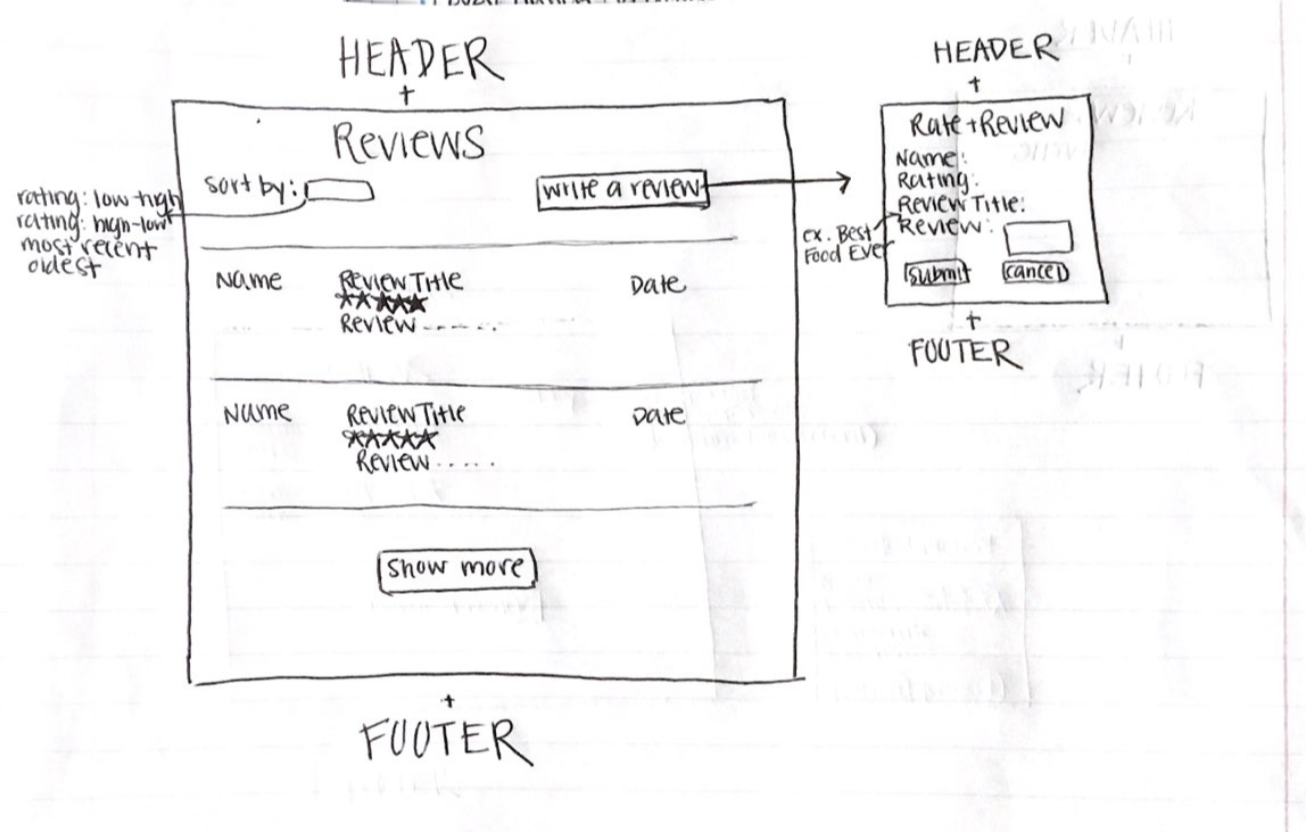 HEADER
+
Reviews
sort by:
write a review
rating: low-high
rating: high-low
most recent
oldest
Name Review Title Date
★★★★★
Review ------
Name Review Title Date
★★★★★
Review.....
show more
+
FOOTER
HEADER
+
Rate + Review
Name:
Rating:
Review Title:
Review:
ex. Best
Food Ever
submit cancel
+
FOOTER